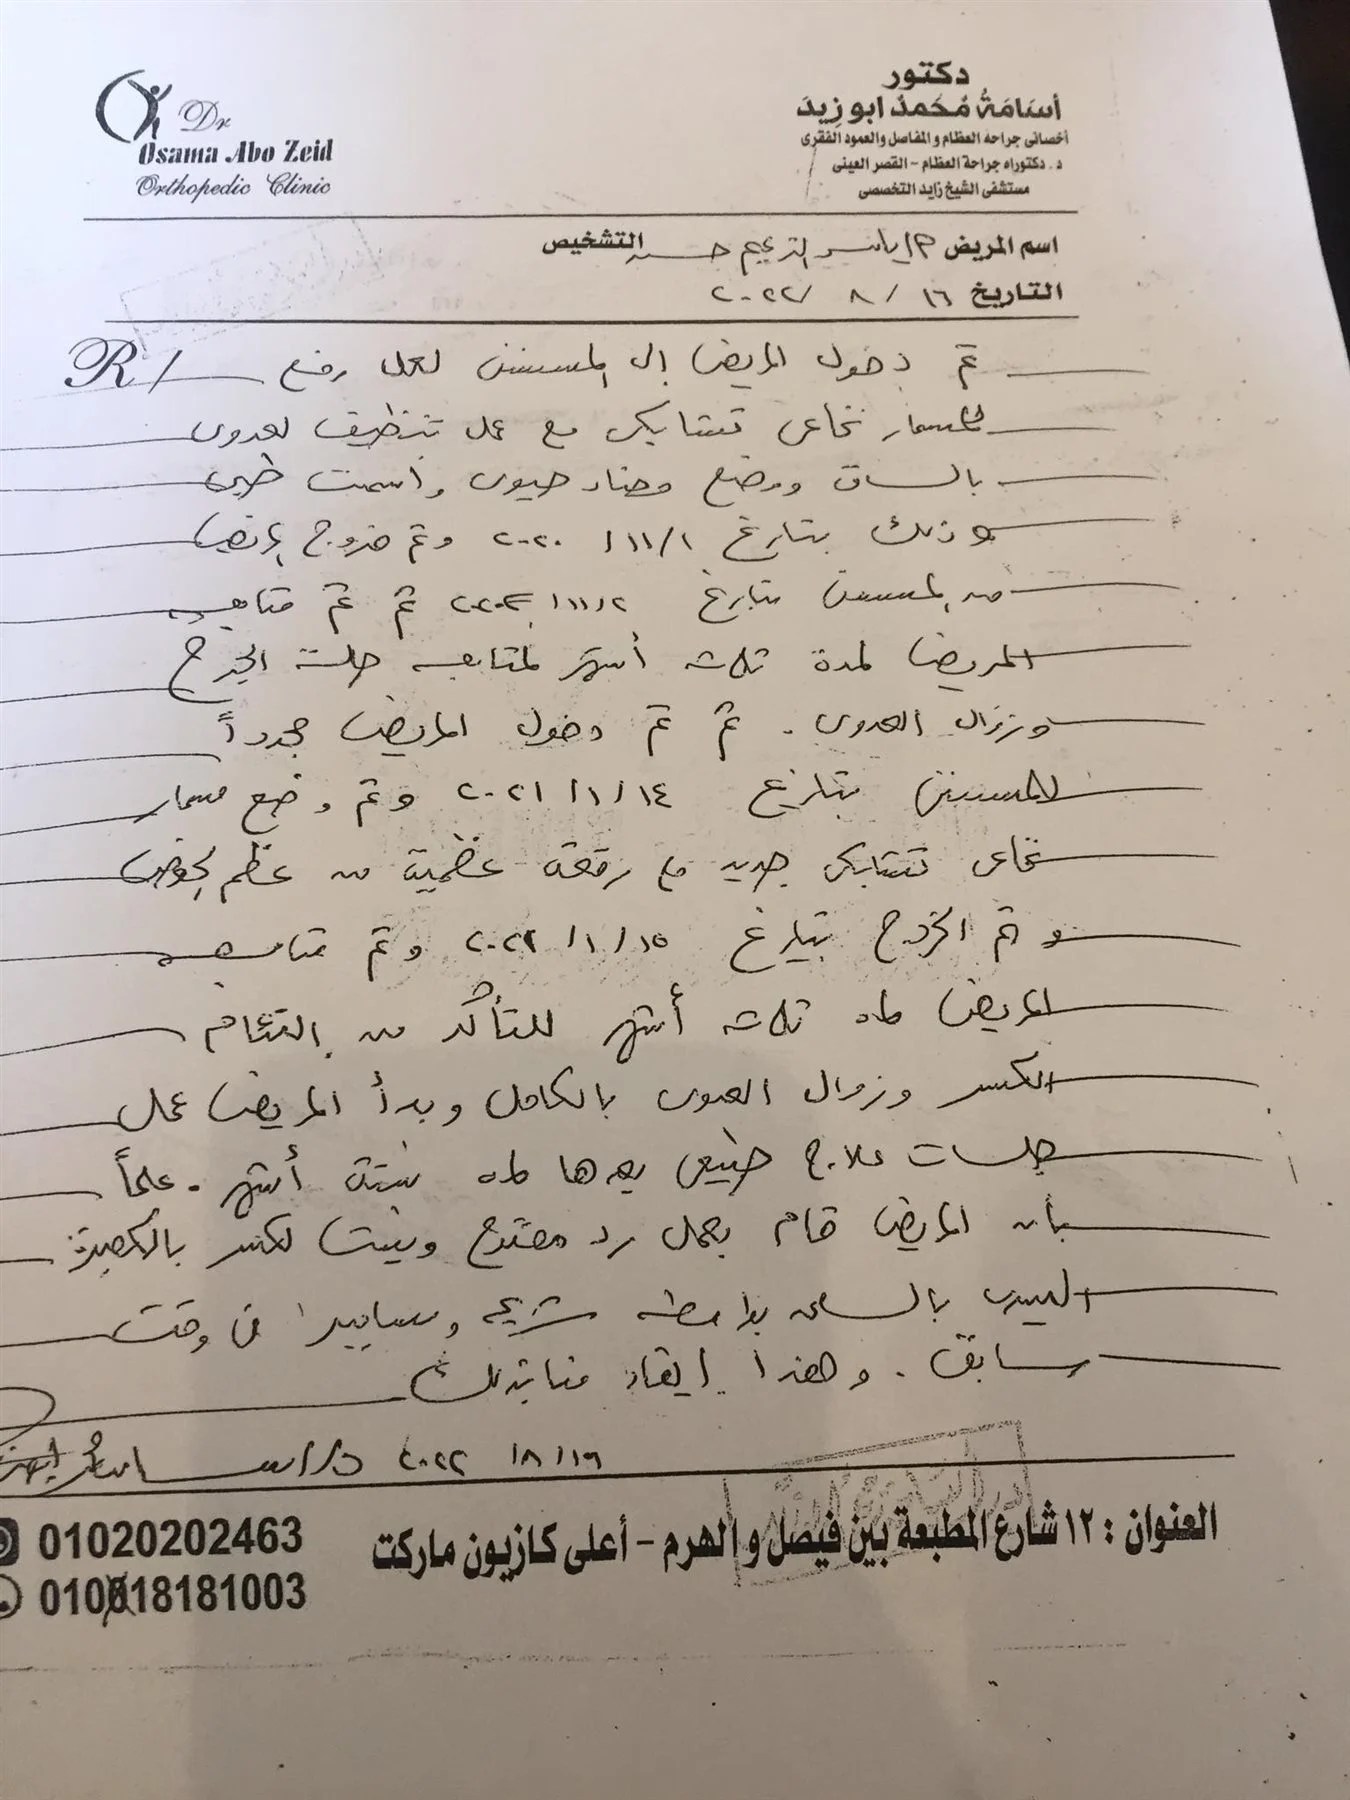 دكتور
أسَامَةُ مُحَمدُ ابو زِيدَ
أخصائى جراحه العظام و المفاصل والعمود الفقرى
د. دكتوراه جراحة العظام - القصر العينى
مستشفى الشيخ زايد التخصصى
Dr
Osama Abo Zeid
Orthopedic Clinic
اسم المريض م/ ياسر حسن التشخيص
التاريخ ١٦ / ٨ / ٢٠٢٢
R/
تم دخول المريض إلى المستشفى لعمل رفع
لمسمار نخاعى تشابكى مع عمل تنظيف لعدوى
بالساق ووضع مضاد حيوى واسمنت طبى
وذلك بتاريخ ١/١١/٢٠٢٠ وتم خروج المريض
من المستشفى بتاريخ ٢/١١/٢٠٢٠ ثم تم متابعه
المريض لمدة ثلاثه أشهر لمتابعه حالة الجرح
وزوال العدوى. ثم تم دخول المريض مجدداً
للمستشفى بتاريخ ١٤/١/٢٠٢١ وتم وضع مسمار
نخاعى تشابكى جديد مع رقعه عظمية من عظم الحوض
وتم الخروج بتاريخ ١٥/١/٢٠٢١ وتم متابعه
المريض لمده ثلاثه أشهر للتأكد من التئام
الكسر وزوال العدوى بالكامل وبدأ المريض عمل
جلسات علاج طبيعى بعدها لمده ستة أشهر. علماً
بأن المريض قام بعمل رد مفتوح وتثبيت لكسر بالقصبة
اليسرى بالساق بواسطه شريحه ومسامير فى وقت
سابق. وهذا إيفاد منا بذلك
١٦/٨/٢٠٢٢ د/ اسامه ابوزيد
العنوان : ١٢ شارع المطبعة بين فيصل و الهرم - أعلى كازيون ماركت
01020202463